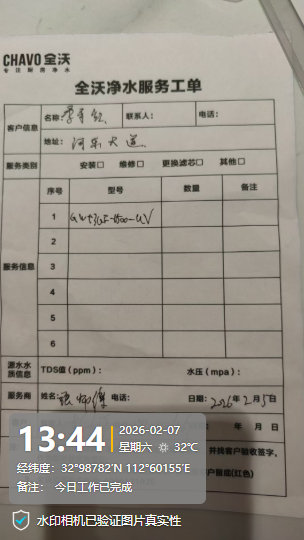 CHAVO 全沃
专注厨房净水
全沃净水服务工单
客户信息
名称：
联系人：
电话：
地址： 河东大道
服务类别
安装☐ 维修☐ 更换滤芯☐ 其他☐
服务信息
序号 型号 数量 备注
1
2
3
4
5
6
源水水质信息
TDS值（ppm）：
水压（mpa）：
服务商
姓名：
电话：
日期： 2026年2月5日
并找客户验收签字。
13:44
2026-02-07
星期六 32℃
经纬度： 32°98782'N 112°60155'E
备注： 今日工作已完成
水印相机已验证图片真实性